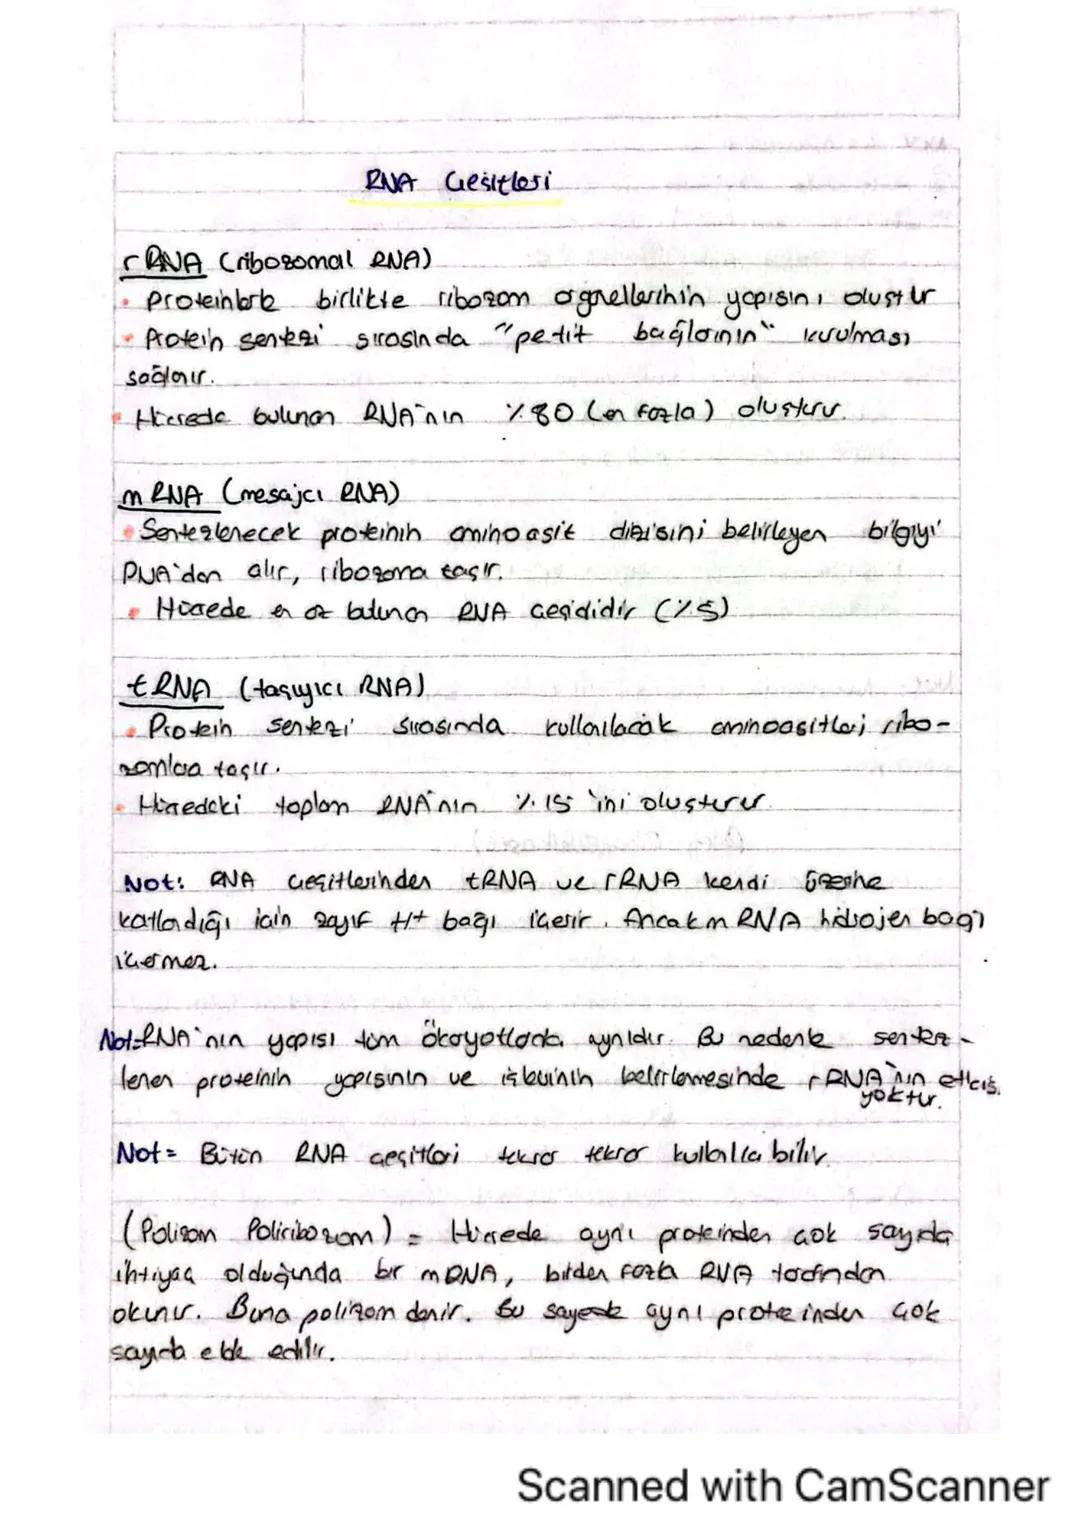 RNA Çeşitleri
rRNA (ribozomal RNA)
• Proteinlerle birlikte ribozom organellerinin yapısını oluştur
• Protein sentezi sırasında "petit bağlarının" kurulması
sağlanır.
• Hücrede bulunan RNA'nın %80 (en fazla) oluşturur.
mRNA (mesajcı RNA)
• Sentezlenecek proteinin aminoasit dizisini belirleyen bilgiyi
DNA'dan alır, ribozoma taşır.
• Hücrede en az bulunan RNA çeşididir (%5)
tRNA (taşıyıcı RNA)
• Protein sentezi sırasında kullanılacak aminoasitleri ribo-
zomlara taşır.
• Hücredeki toplam RNA'nın %15'ini oluşturur.
Not: RNA çeşitlerinden tRNA ve rRNA kendi üzerine
katlandığı için zayıf H+ bağı içerir. Ancak mRNA hidrojen bağı
içermez.
Not=RNA'nın yapısı tüm ökaryotlarda aynıdır. Bu nedenle sentez-
lenen proteinin yapısının ve işlevinin belirlenmesinde rRNA'nın etkisi
yoktur.
Not= Bütün RNA çeşitleri tekrar tekrar kullanılabilir.
(Polizom Poliribozom) = Hücrede aynı proteinden çok sayıda
ihtiyaç olduğunda bir mRNA, birden fazla RNA tarafından
okunur. Buna polizom denir. Bu sayede aynı proteinden çok
sayıda elde edilir.
Scanned with CamScanner